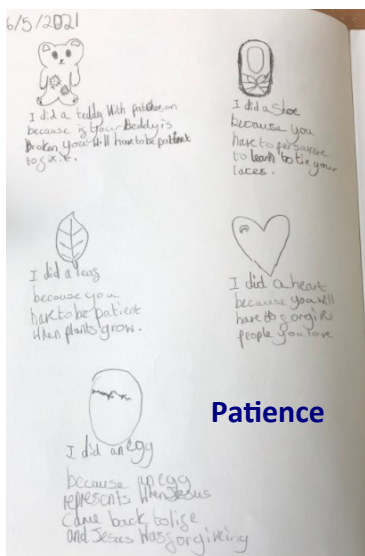 6/5/2021
I did a teddy with patches on
because is your teddy is
broken you will have to be patient
to fix it.
I did a Shoe
because you
have to persavere
to learn to tie your
laces.
I did a leaf
because you
have to be patient
when plants grow.
I did a heart
because you will
have to forgive
people you love
I did an egg
because an egg
represents when Jesus
came back to life
and Jesus was forgiveing
Patience